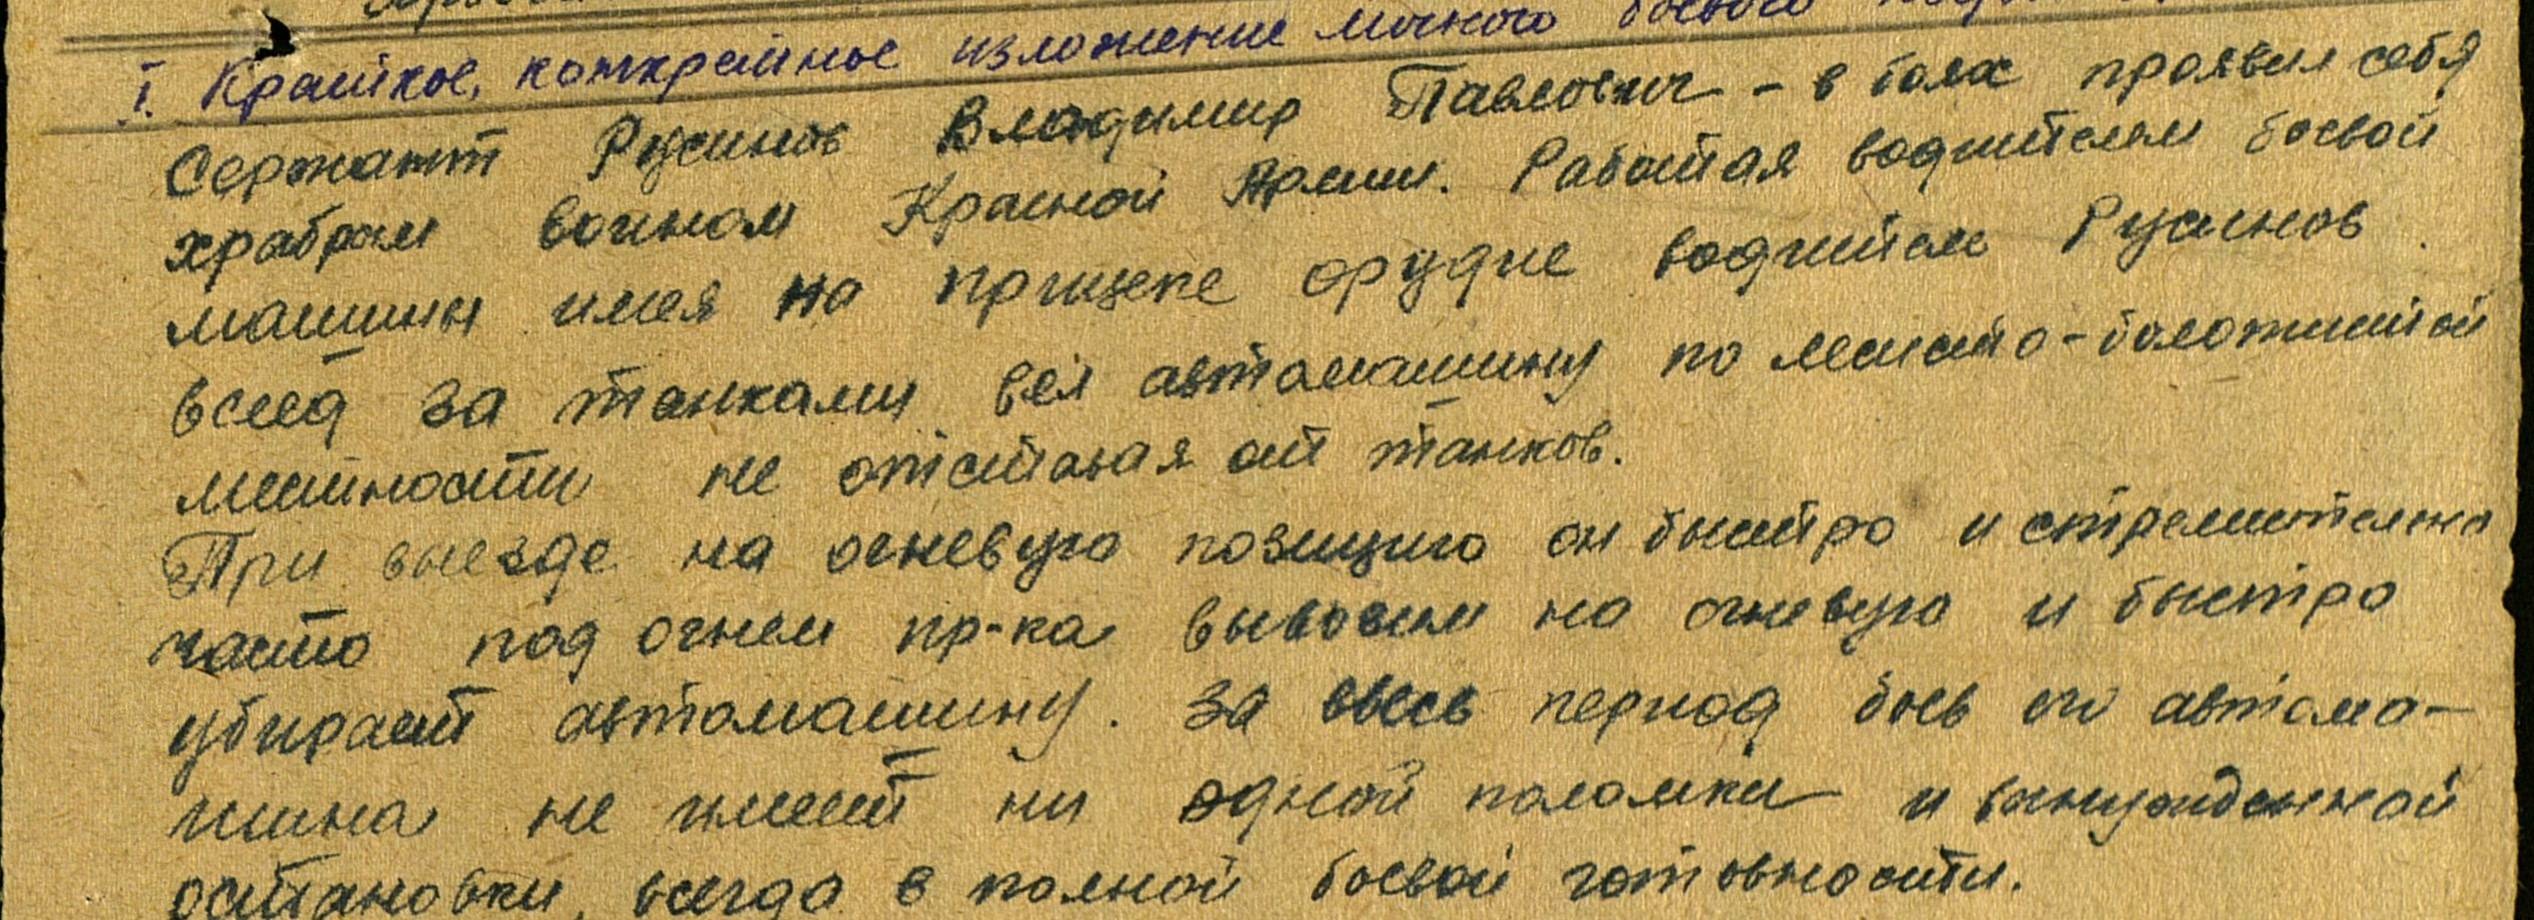 I. Краткое, конкретное изложение личного боевого
Сержант Русинов Владимир Павлович - в боях проявил себя
храбрым воином Красной Армии. Работая водителем боевой
машины имея на прицепе орудие водитель Русинов
вслед за танками вёл автомашину по лесисто-болотистой
местности не отставая от танков.
При выезде на огневую позицию он быстро и стремительно
часто под огнем пр-ка вывозил на огневую и быстро
убирает автомашину. За весь период боев его автома-
шина не имеет ни одной поломки и вынужденной
остановки, всегда в полной боевой готовности.